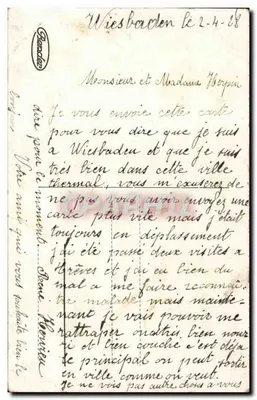 Wiesbaden le 2-4-28
Monsieur et Madame Herpin
Je vous envoie cette carte
pour vous dire que je suis
a Wiesbaden et que je suis
très bien dans cette ville
thermal, vous m'excuserez de
ne pas vous avoir envoyez une
carte plus vite mais j'était
toujours en déplassement
j'ai été passé deux visites a
trèves et j'ai eu bien du
mal a me faire reconnai
tre malade mais mainte-
nant je vais pouvoir me
rattraper on est très bien nour
ri et bien couché c'est déja
le principal on peut sortir
en ville comme on veut.
Je ne vois pas autre chose a vous
dire pour le moment.
Votre ami qui vous souhaite bien le
bonjour